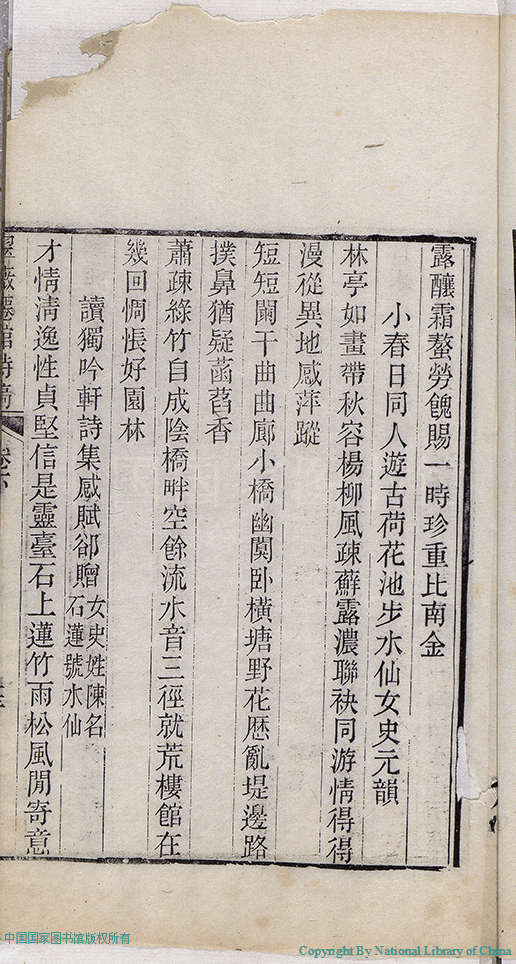 露釀霜螯勞餽賜一時珍重比南金
小春日同人遊古荷花池步水仙女史元韻
林亭如畫帶秋容楊柳風疎蘚露濃聯袂同游情得得
漫從異地感萍蹤
短短闌干曲曲廊小橋幽闃卧橫塘野花歷亂堤邊路
撲鼻猶疑菡萏香
蕭疎綠竹自成陰橋畔空餘流水音三徑就荒樓館在
幾回惆悵好園林
讀獨吟軒詩集感賦卻贈女史姓陳名石蓮號水仙
才情淸逸性貞堅信是靈臺石上蓮竹雨松風閒寄意
館詩
卷六
中国国家图书馆版权所有
Copyright By National Library of China